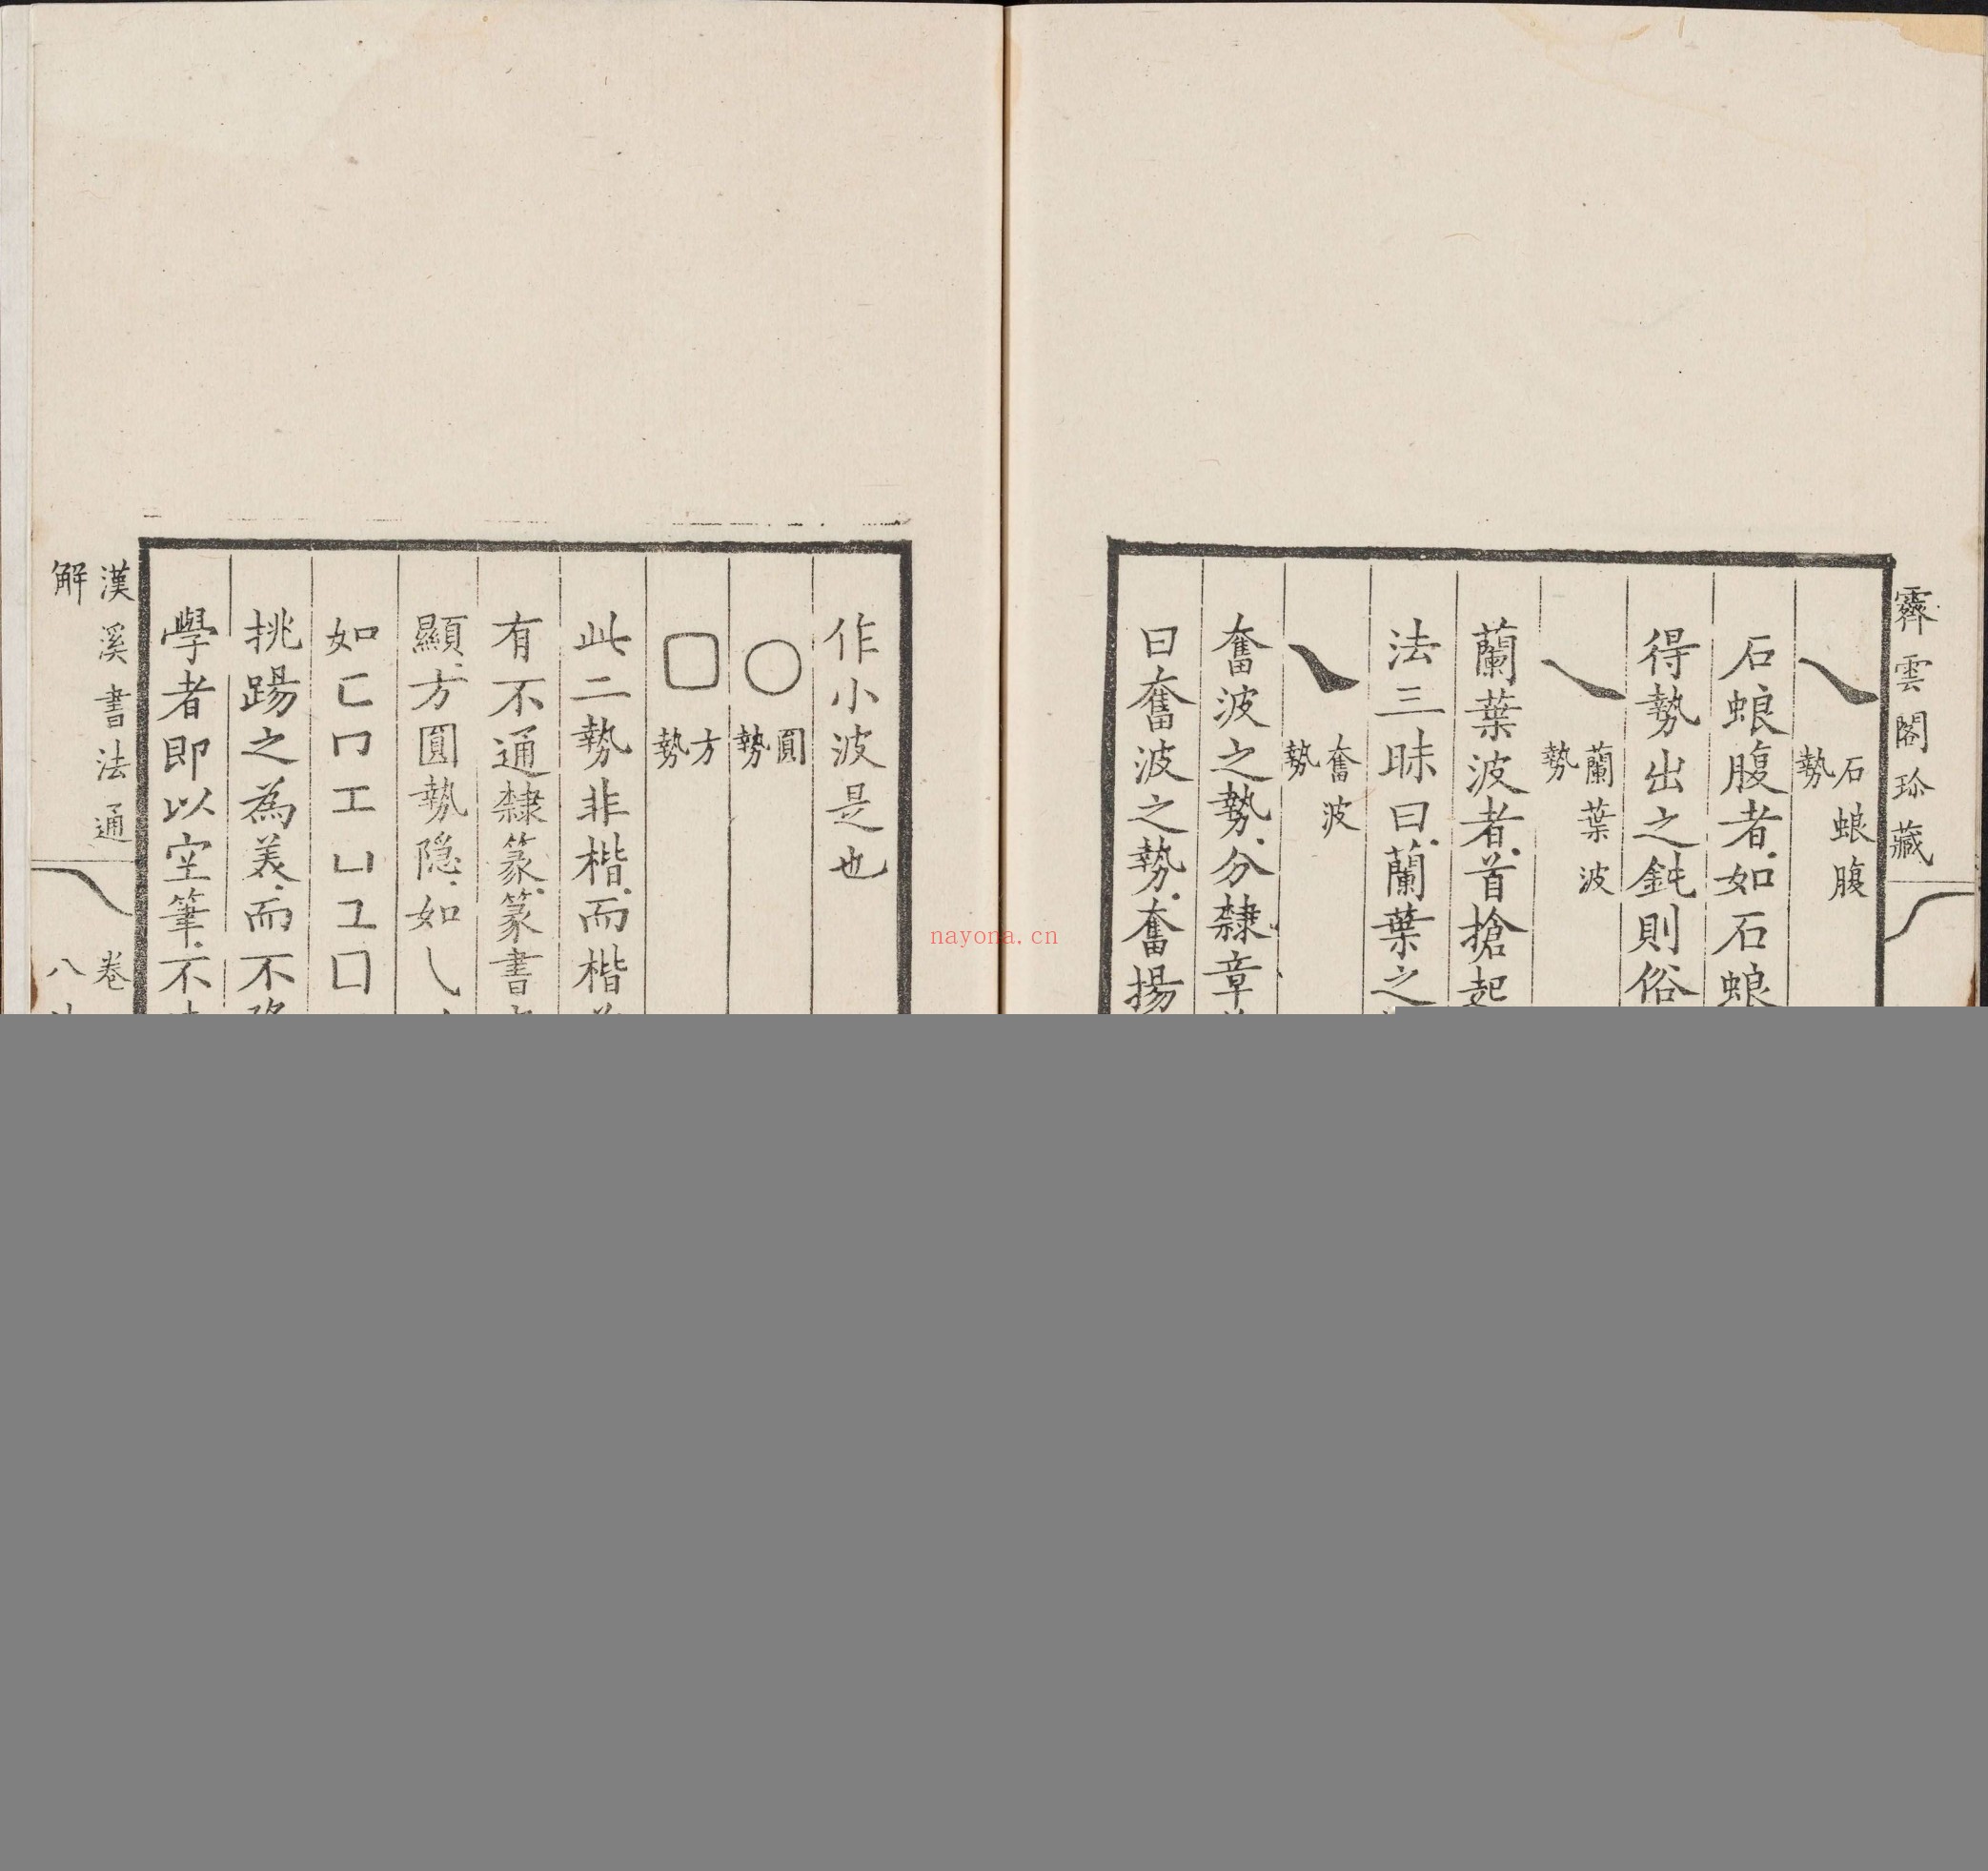 霽雲閣珍藏
石蜋腹勢
石蜋腹者如石蜋
得勢出之鈍則俗
蘭葉波勢
蘭葉波者首搶起
法三昧曰蘭葉之
奮波勢
奮波之勢分隸章
曰奮波之勢奮揚
作小波是也
圓勢
方勢
此二勢非楷而楷
有不通隸篆篆書
顯方圓勢隐如乀
如匚冂工凵彐囗
挑踢之為美而不
學者即以空筆不
漢溪書法通解
卷八
nayona.cn